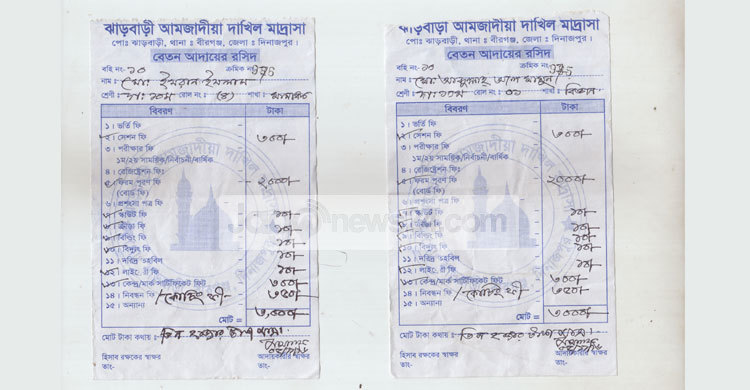 ঝাড়বাড়ী আমজাদীয়া দাখিল মাদ্রাসা
পোঃ ঝাড়বাড়ী, থানা ঃ বীরগঞ্জ, জেলা ঃ দিনাজপুর।
বেতন আদায়ের রসিদ
বহি নং- ১০ ক্রমিক নং-
নাম : মোঃ ইমরান ইসলাম
শ্রেণী : দাঃ ১০ম রোল নং : (৪) শাখা :
বিবরণ টাকা
১। ভর্তি ফি
২। সেশন ফি ৩০০
৩। পরীক্ষার ফি
১ম/২য় সাময়িক/নির্বাচনী/বার্ষিক
৪। রেজিষ্ট্রেশন ফিঃ
৫। ফরম পুরণ ফি ২০০০
(বোর্ড ফি)
৬। প্রশংসা পত্র ফি
৭। স্কাউট ফি ১০
৮। ক্রীড়া ফি ১০
৯। বিল্ডিং ফি ১০
১০। বিদ্যুৎ ফি ১০
১১। দরিদ্র তহবিল
১২। লাইব্রেরী ফি ১০
১৩। কেন্দ্র/মার্ক সার্টিফিকেট ফি ৩০০
১৪। নিবন্ধন ফি / কোচিং ফী- ৩৫০
১৫। অন্যান্য
মোট = ৩,০০০
মোট টাকা কথায় : তিন হাজার টাকা মাত্র।
হিসাব রক্ষকের স্বাক্ষর আদায়কারীর স্বাক্ষর
তাং-
ঝাড়বাড়ী আমজাদীয়া দাখিল মাদ্রাসা
পোঃ ঝাড়বাড়ী, থানা ঃ বীরগঞ্জ, জেলা ঃ দিনাজপুর।
বেতন আদায়ের রসিদ
বহি নং- ১০ ক্রমিক নং-
নাম : মোঃ আব্দুল্লাহ আল মামুন
শ্রেণী : দাঃ ১০ম রোল নং : ০১ শাখা : বিজ্ঞান
বিবরণ টাকা
১। ভর্তি ফি
২। সেশন ফি ৩০০
৩। পরীক্ষার ফি
১ম/২য় সাময়িক/নির্বাচনী/বার্ষিক
৪। রেজিষ্ট্রেশন ফিঃ
৫। ফরম পুরণ ফি ২০০০
(বোর্ড ফি)
৬। প্রশংসা পত্র ফি
৭। স্কাউট ফি ১০
৮। ক্রীড়া ফি ১০
৯। বিল্ডিং ফি ১০
১০। বিদ্যুৎ ফি ১০
১১। দরিদ্র তহবিল
১২। লাইব্রেরী ফি ১০
১৩। কেন্দ্র/মার্ক সার্টিফিকেট ফি ৩০০
১৪। নিবন্ধন ফি / কোচিং ফী ৩৫০
১৫। অন্যান্য
মোট = ৩০০০
মোট টাকা কথায় : তিন হাজার টাকা মাত্র।
হিসাব রক্ষকের স্বাক্ষর আদায়কারীর স্বাক্ষর
তাং-